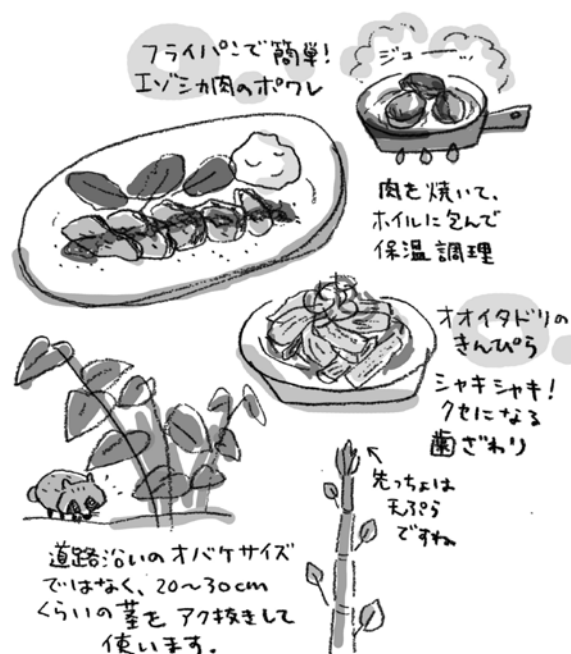 フライパンで簡単!
エゾシカ肉のポワレ
ジュー…
肉を焼いて、
ホイルに包んで
保温調理
オオイタドリの
きんぴら
シャキシャキ!
クセになる
歯ざわり
先っちょは
天ぷら
ですね
道路沿いのオバケサイズ
ではなく、20〜30cm
くらいの茎をアク抜きして
使います。